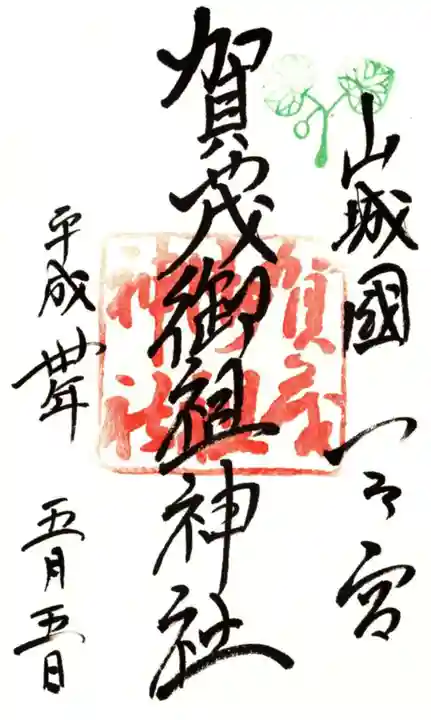 山城國 一之宮
賀茂御祖神社
平成丗年 五月五日
賀茂
御祖
神社